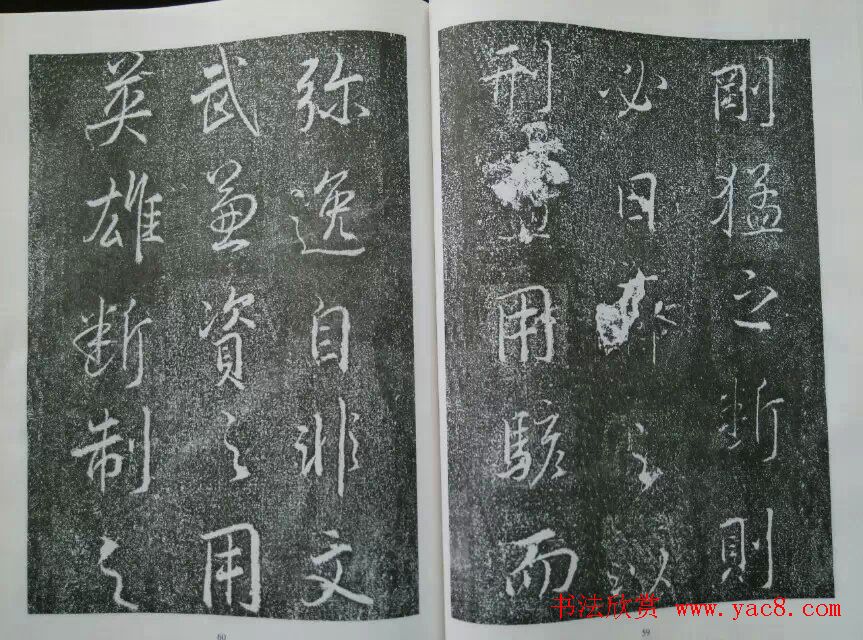 剛猛之断則
必日之以
刑用駭而
59
弥逸自非文
武兼資之用
英雄断制之
60
书法欣赏 www.yac8.com